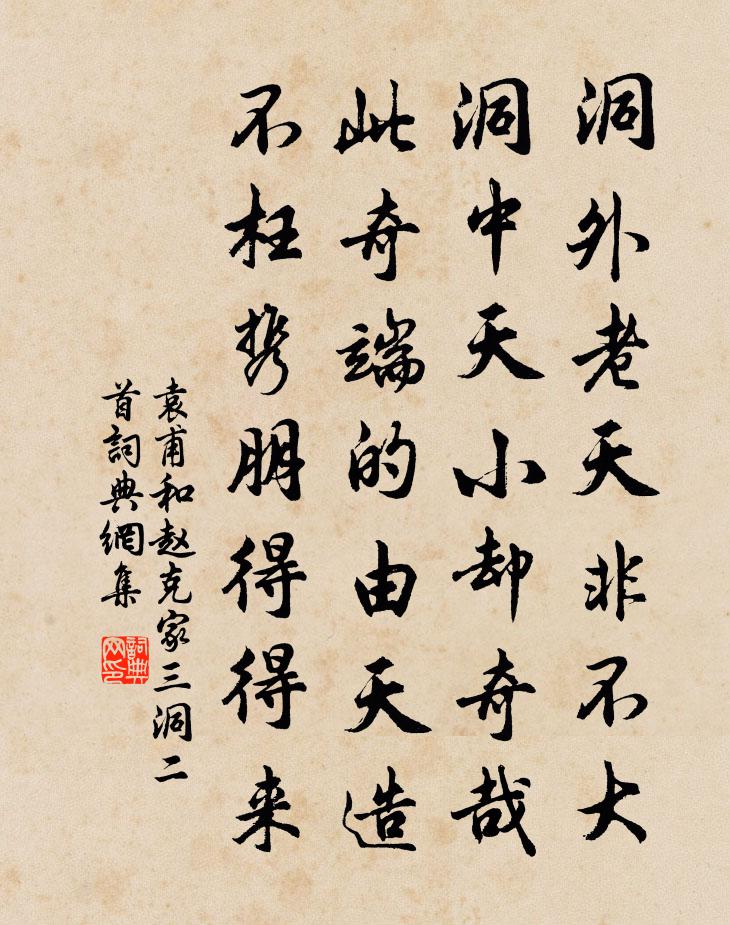 洞外老天非不大
洞中天小却奇哉
此奇端的由天造
不枉携朋得得来
袁甫和赵克家三洞二
首詞典網集
詞典网印